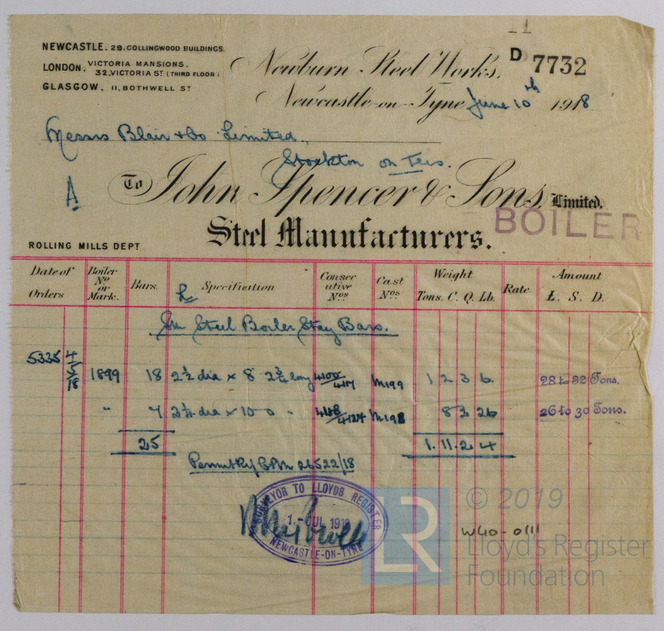 NEWCASTLE. 29. COLLINGWOOD BUILDINGS.
LONDON. VICTORIA MANSIONS. 32, VICTORIA ST. (THIRD FLOOR)
GLASGOW. 11, BOTHWELL ST
Newburn Steel Works,
D 7732
Newcastle-on-Tyne June 10th 1918
Messrs Blair & Co Limited,
Stockton on Tees.
A
To John Spencer & Sons, Limited.
BOILER
Steel Manufacturers.
ROLLING MILLS DEPT
Date of Orders Boiler No or Mark. Bars. Specification Consecutive Nos Cast Nos Weight Tons. C. Q. Lb. Rate Amount £. S. D.
Sm Steel Boiler Stay Bars.
5335 4/5/18 1899 18 2½ dia × 8 2½ long 4100/4117 M199 1 2 3 6 28 to 32 Tons.
" 7 dia × 10 0 " 4118/4124 M198 8 3 26 26 to 30 Tons.
25 1. 11. 2. 4
26522/18
SURVEYOR TO LLOYDS REGISTER
1 - JUL 1918
NEWCASTLE-ON-TYNE
LR
© 2019
W40-0111
Lloyd's Register
Foundation